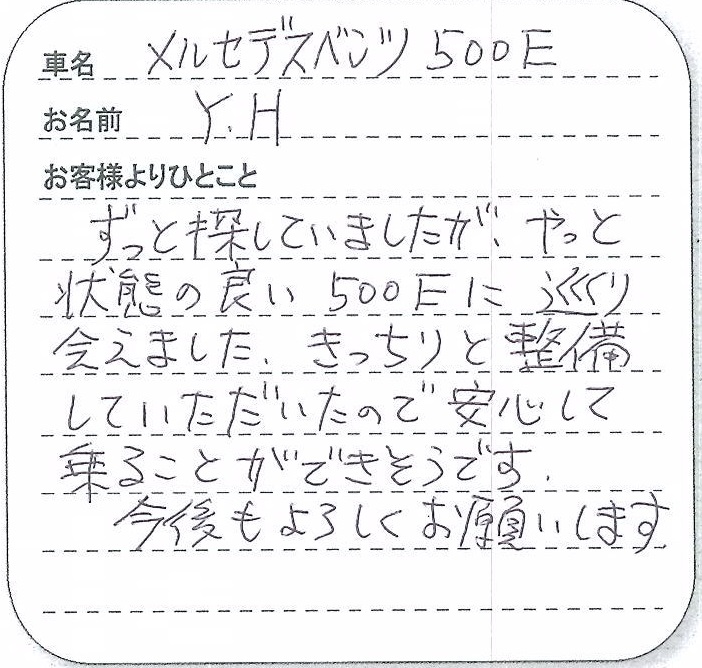 車名 メルセデスベンツ 500E
お名前 Y.H
お客様よりひとこと
ずっと探していましたが、やっと
状態の良い 500Eに 巡り
会えました、きっちりと整備
していただいたので安心して
乗ることができそうです.
今後もよろしくお願いします